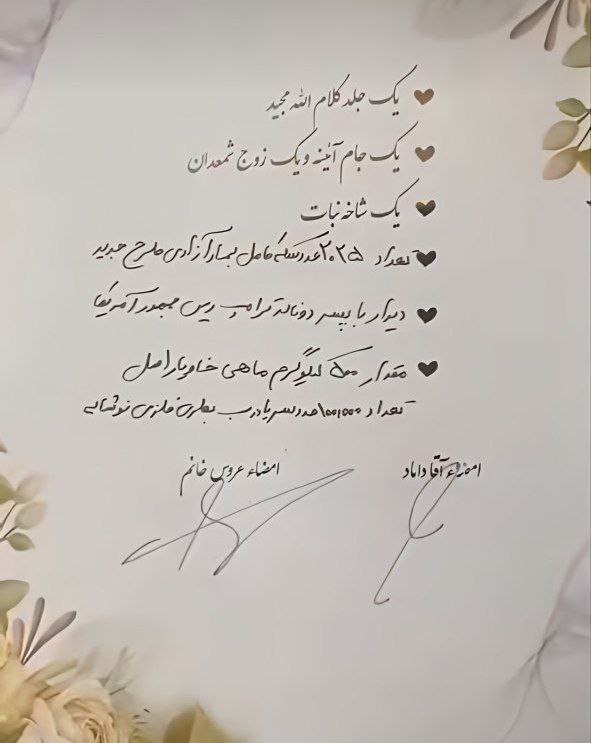 یک جلد کلام الله مجید
یک جام آئینه و یک زوج شمعدان
یک شاخه نبات
تعداد ۲۰۲۵ عدد سکه کامل بهار آزادی طرح جدید
دیدار با پسر دونالد ترامپ رییس جمهور آمریکا
مقدار ۵۰۰ کیلوگرم ماهی خاویار اصل
تعداد ۱۰۰،۰۰۰ عدد سر یا درب بطری فلزی نوشابه
امضاء آقا داماد
امضاء عروس خانم